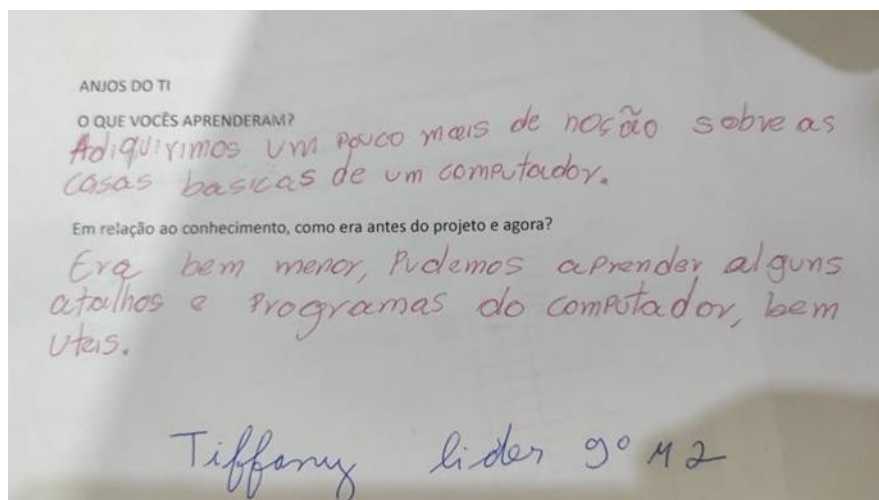 ANJOS DO TI
O QUE VOCÊS APRENDERAM?
Adiquirimos um pouco mais de noção sobre as
casas basicas de um computador.
Em relação ao conhecimento, como era antes do projeto e agora?
Era bem menor, Pudemos aprender alguns
atalhos e programas do computador, bem
uteis.
Tiffany lider 9º M2